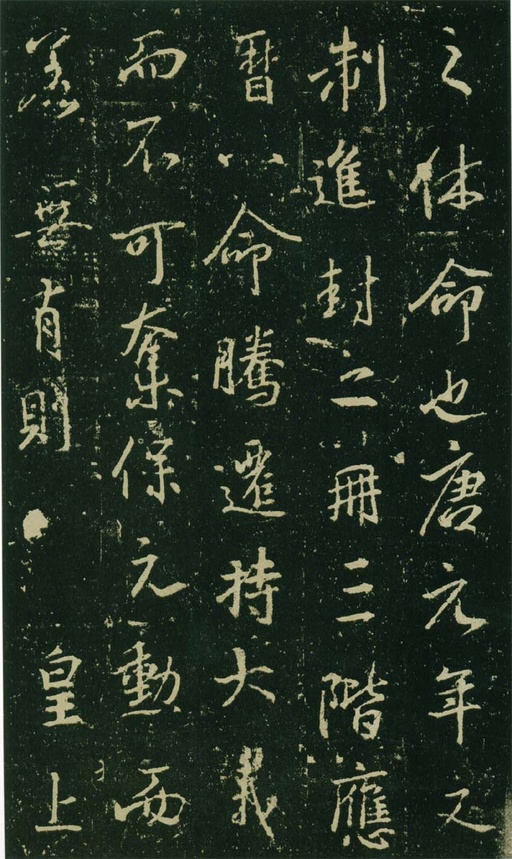 之休命也唐元年又
制進封二冊三階應
暦八命騰遷持大義
而不可奪保元勳而
恙無有則皇上